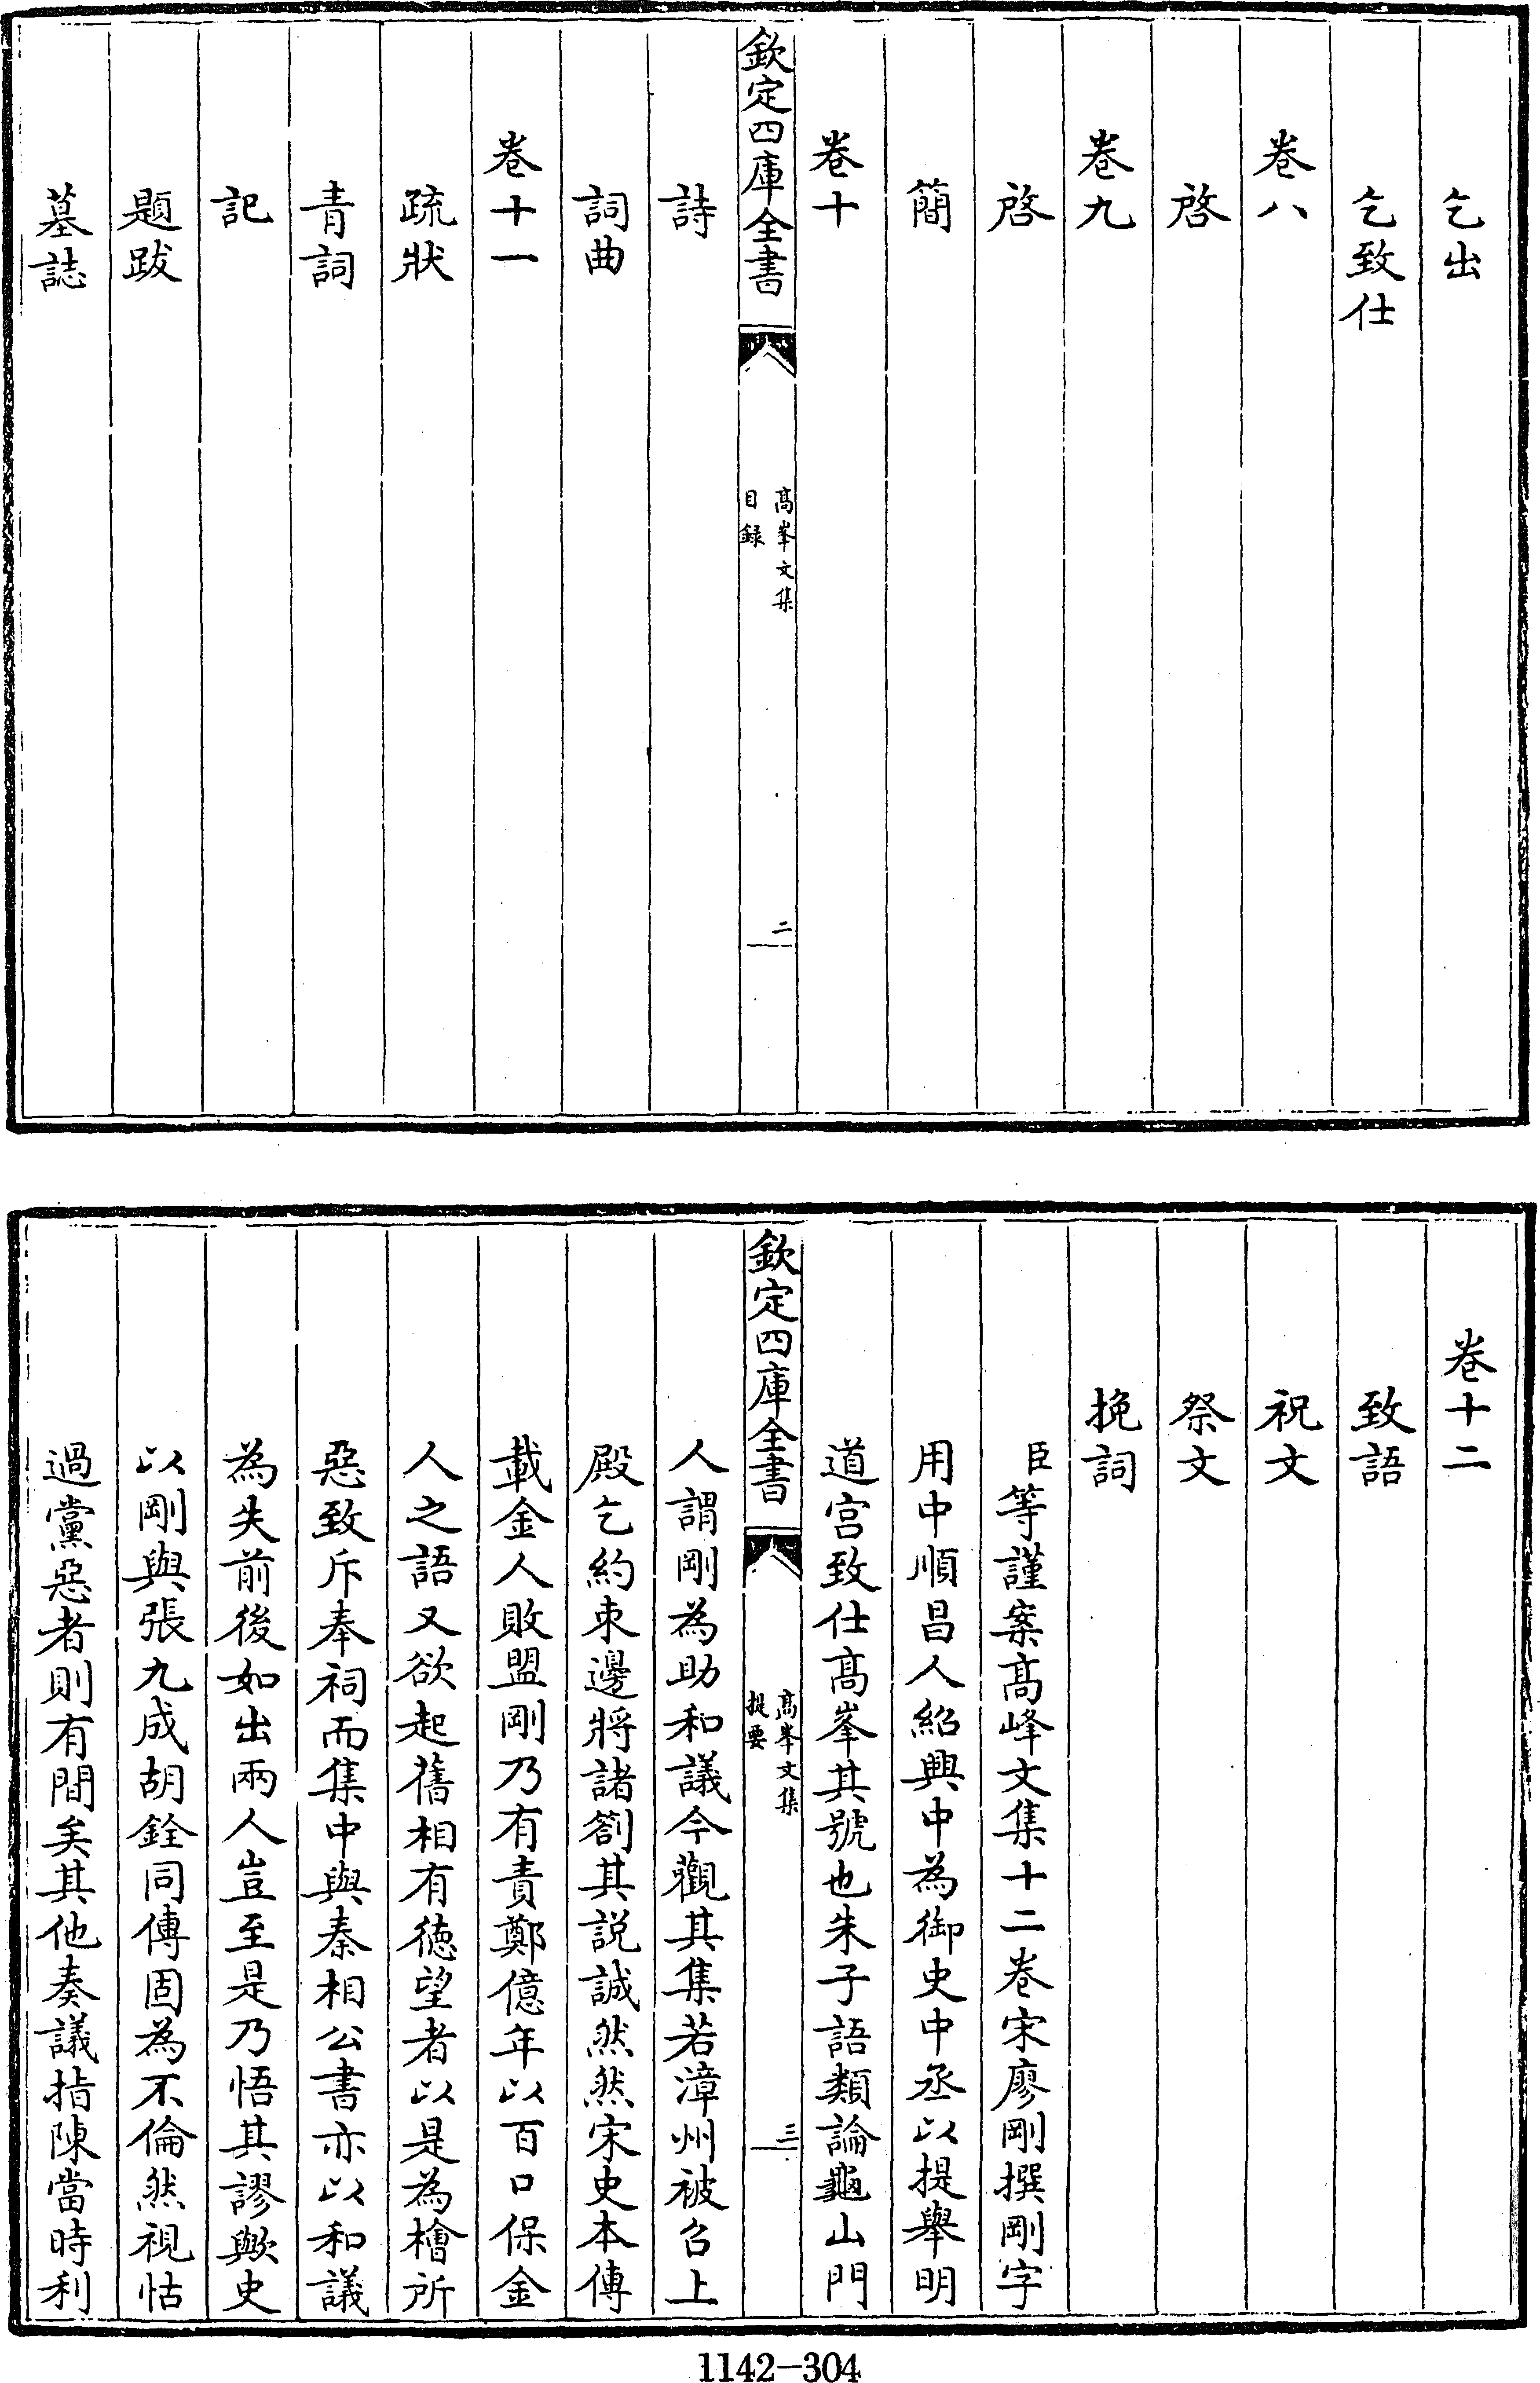 乞出
乞致仕
卷八
啓
卷九
啓
簡
卷十
欽定四庫全書
高峯文集
目録
二
詩
詞曲
卷十一
疏狀
青詞
記
題跋
墓誌
卷十二
致語
祝文
祭文
挽詞
臣等謹案髙峰文集十二卷宋廖剛撰剛字
用中順昌人紹興中為御史中丞以提舉明
道宫致仕髙峯其號也朱子語類論龜山門
欽定四庫全書
髙峯文集
提要
三
人謂剛為助和議今觀其集若漳州被召上
殿乞約束邊將諸劄其説誠然然宋史本傳
載金人敗盟剛乃有責鄭億年以百口保金
人之語又欲起舊相有徳望者以是為檜所
惡致斥奉祠而集中與秦相公書亦以和議
為失前後如出兩人豈至是乃悟其謬歟史
以剛與張九成胡銓同傳固為不倫然視怙
過黨惡者則有間矣其他奏議指陳當時利
1142-304